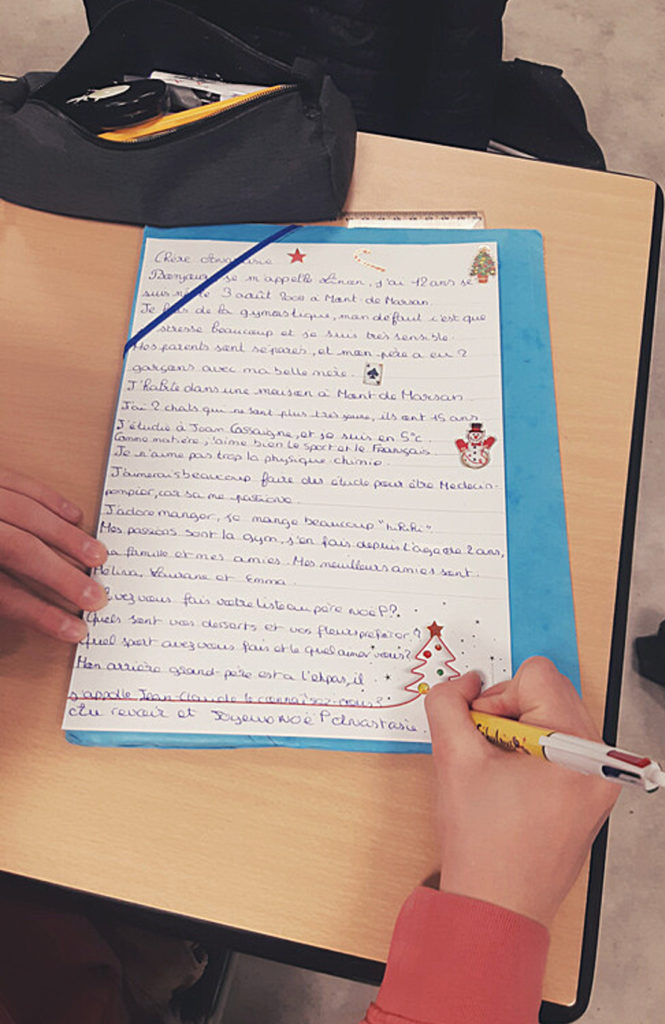 Chère Anastasie
Bonjour, je m'appelle , j'ai 12 ans je
suis né le 3 août à Mont de Marsan.
Je fais de la gymastique, mon défaut c'est que
stresse beaucoup et je suis très sensible.
Mes parents sont séparés, et mon père a eu 2
garçons avec ma belle mère.
J'habite dans une maison à Mont de Marsan.
J'ai 2 chats qui ne sont plus très jeune, ils ont 15 ans.
J'étudie à Jean Cassaigne, et je suis en 5°c.
Comme matière, j'aime bien le sport et le Français.
Je n'aime pas trop la physique-chimie.
J'aimerais beaucoup faire des étude pour être Medecin-
pompier, car sa me passione.
J'adore manger, je mange beaucoup "hihihi".
Mes passions sont la gym, j'en fais depuis l'age de 2 ans,
la famille et mes amies. Mes meilleurs amies sont:
Mélina, Laurane et Emma.
Avez vous fais votre liste au père noël?
Quels sont vos desserts et vos fleurs préférer?
Quel sport avez vous fais et le quel aimer vous?
Mon arrière grand-père est à l'ehpas, il
s'appelle Jean-Claude le connaisez-vous?
Au revoir et Joyeux noël Anastasie.